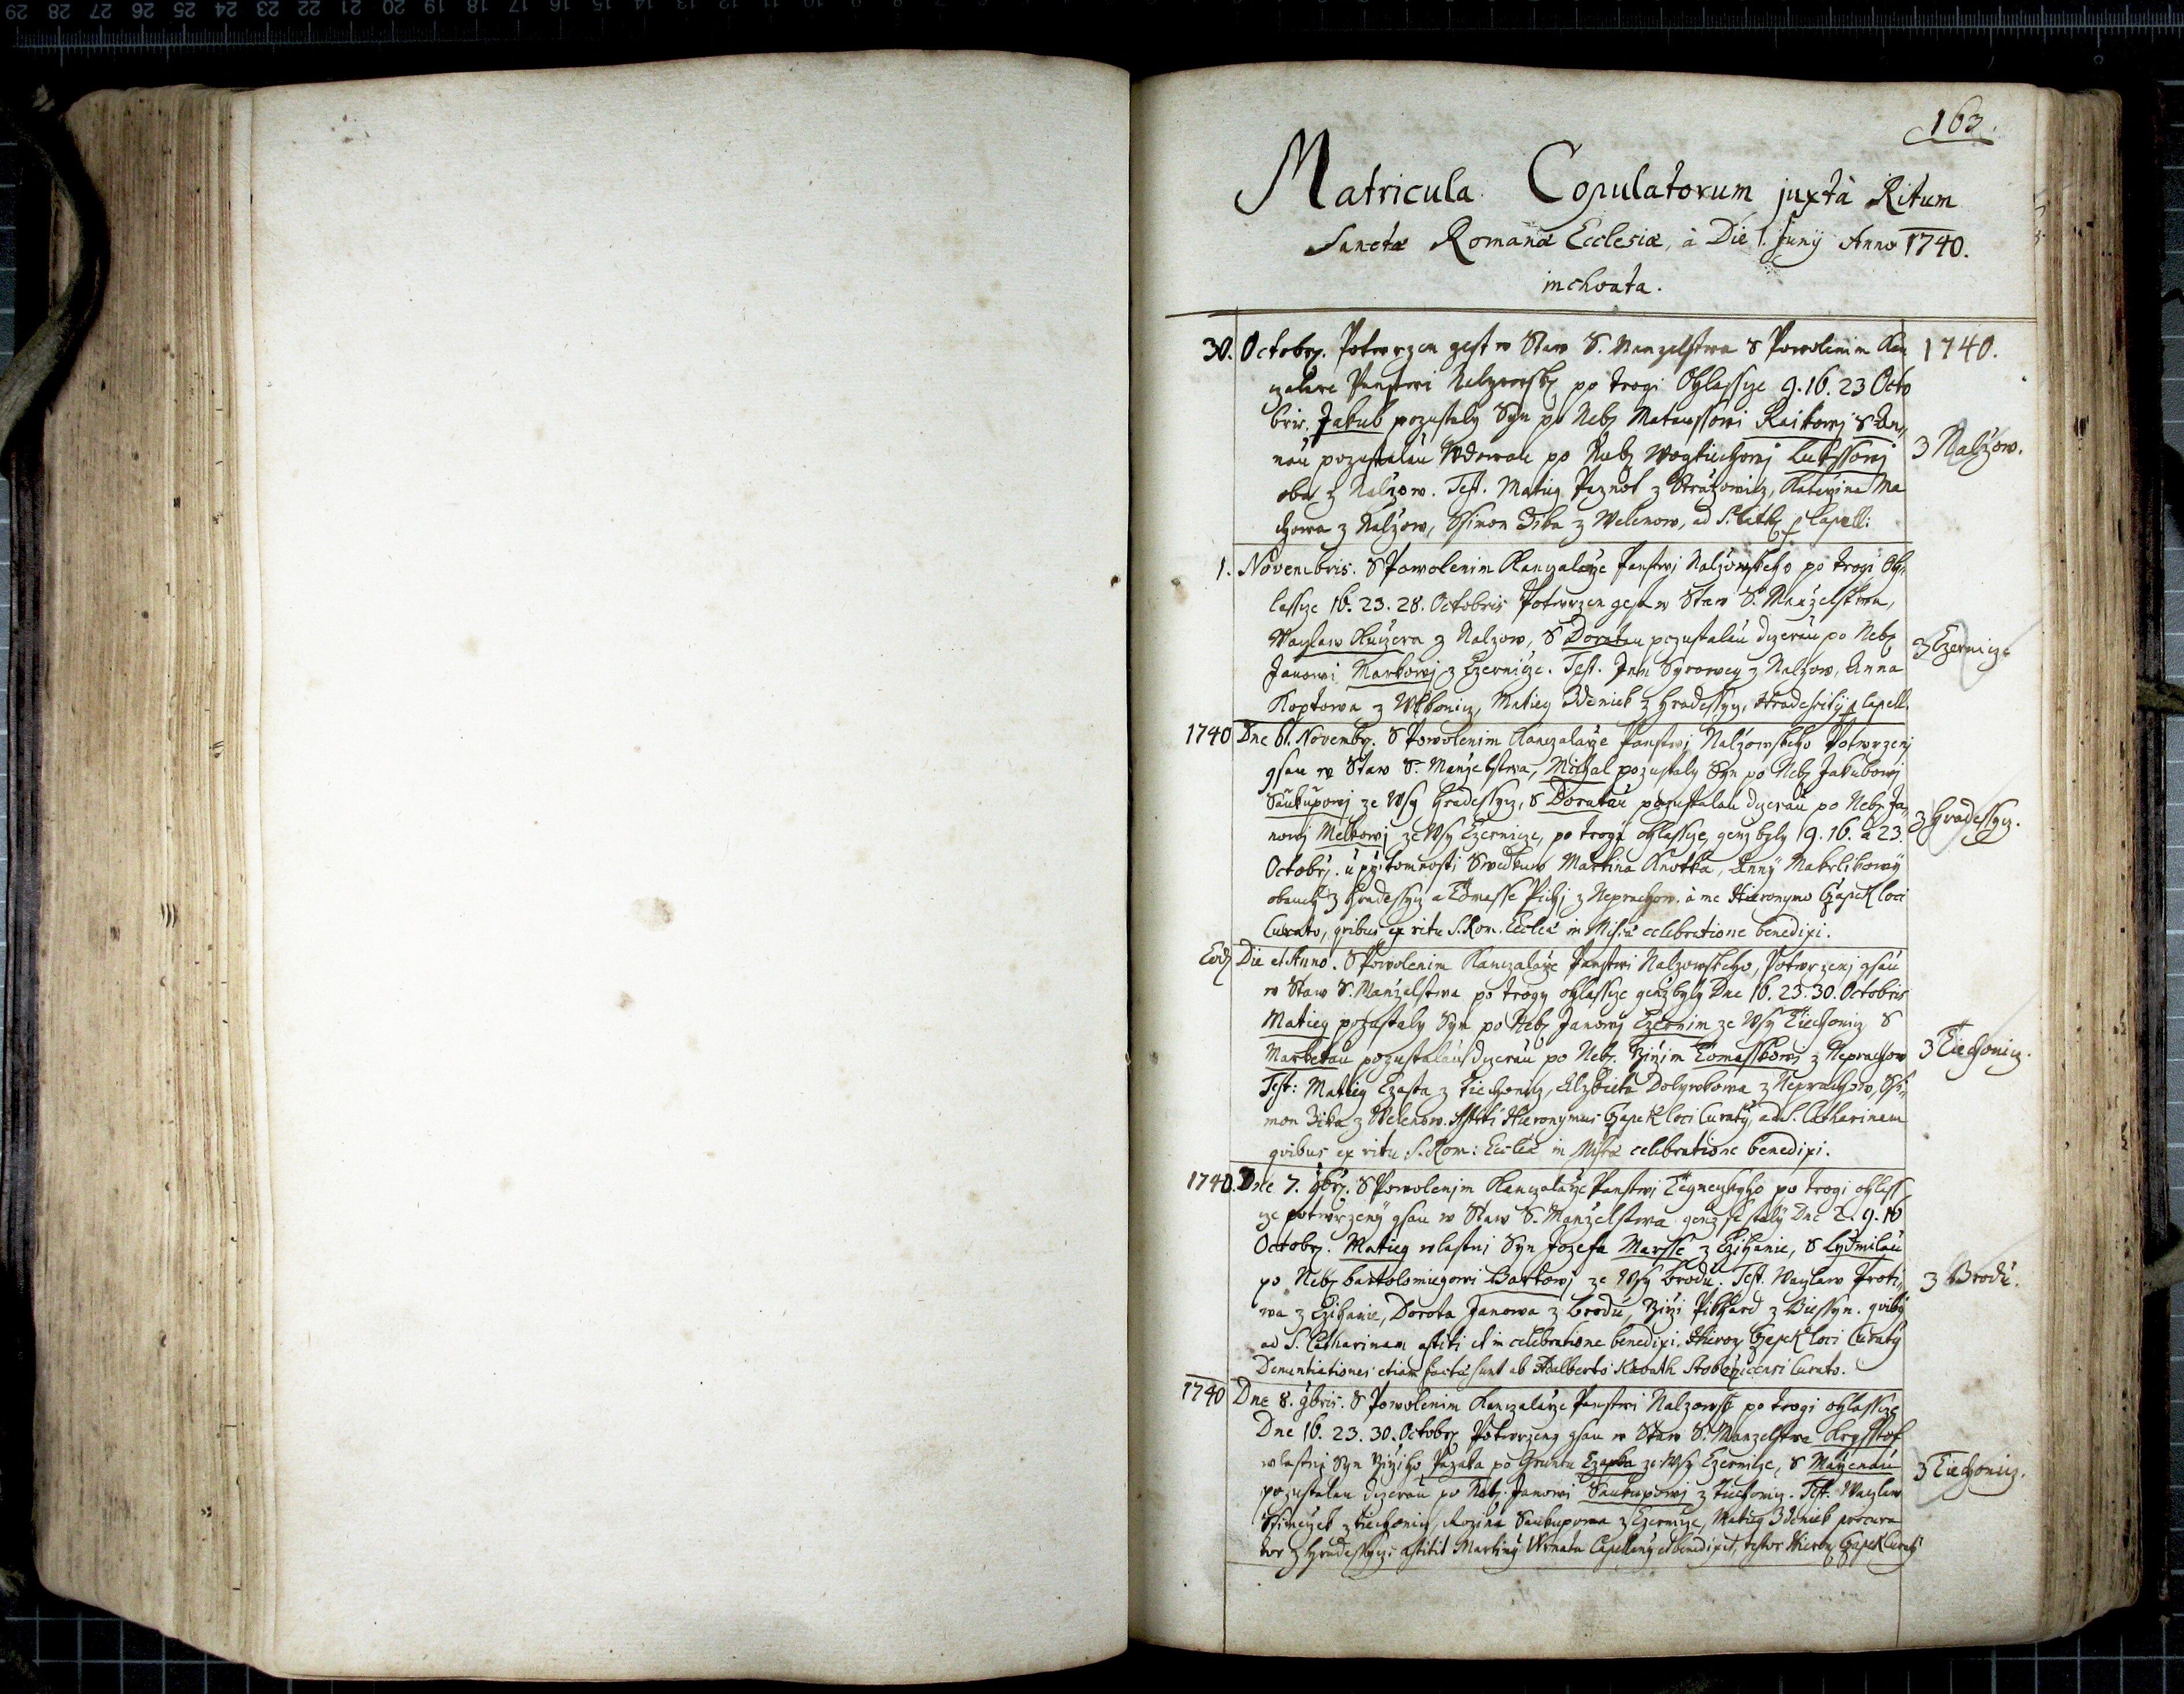 163.
Matricula Copulatorum juxtà Ritum
Sanctæ Romanæ Ecclesiæ, à Die 1. Junÿ Anno 1740.
inchoata.
30. Octobr. Potwrzen gest w Staw S. Manzelstwa S Powolenim Kan 1740.
zelare Panstwi Nalzowsk po trogi Ohlassce 9. 16. 23 Octo
bris. Jakub pozustaly Syn po Neb Mataussowi Raikowj S An,,
nau pozustalau Wdowau po Neb Wogtiechowj Luksowj 3 Nalžow.
oba z Nalzow. Test. Matieg Paznol z Strazowicz, Katerzina Ma
chowa z Nalzow, Ssimon Ziba z Welenow, ad S. Cath Capell:
1. Novembris. S Powolenim Kanzalarze Panstwj Nalzowskeho po trogi Oh,,
lassce 16. 23. 28. Octobris Potwrzen gest w Staw S. Manzelstwa,
Waczlaw Kuczera z Nalzow, S Dorotau pozustalau dczerau po Neb 3 Czernicze
Janowi Markowj z Czernicze. Test. Jan Syrowey z Nalzow, Anna
Koptowa z Wlkonicz, Matieg Zdeniek z Hradessicz, Capell.
1740 Dne 6. Novembr. S Powolenim Kanczalarze Panstwj Nalžowskeho Potwrzenj
gsau w Staw S. Manzelstwa, Michal pozustaly Syn po Neb Jakubowj
Saukupowj ze Wsy Hradessicz, S Dorotau pozustalau dczerau po Neb Ja,,
nowj Melkowj ze Wsy Czernicze, po trogi ohlassce, genz byly 9. 16. a 23. 3 Hradessicz.
Octobr. u przitomnosti Swedkuw Martina Knotka, Annÿ Makrlikowÿ
obauch z Hradessicz a Tomasse Pichj z Neprachow. à me Hieronymo Czapek loci
Curato, quibus ex ritu S. Rom. Eccleæ in Missæ celebratione benedixi.
Eod Die et Anno. S Powolenim Kanczalarze Panstwi Nalzowskeho, Potwrzenj gsau
w Staw S. Manzelstwa po trogy ohlassce genz byly Dne 16. 23. 30. Octobris
Matieg pozustaly Syn po Neb Janowj Czernim ze Wsy Tiechonicz S
Marketau pozustalau dczerau po Neb. Girim Tomasskowj z Neprachow 3 Tiechonicz.
Test: Matieg Czasta z Tiechonicz, Alzbieta Dolyrokowa z Neprachow, Ssi,,
mon Ziba z Welenow. Astiti Hieronymus Czapek loci Curatÿ, ad S. Catharinam
quibus ex ritu S. Rom: Eccleæ in Missæ celebratione benedixi.
1740. Dne 7. 9br. S Powolenjm Kanczalarze Panstwj po trogi ohlass
ce potwrzenÿ gsau w Staw S. Manželstwa genz se stalÿ Dne 2. 9. 16
Octobr. Matieg wlastni Syn Jozefa Marsse z Czihanie, S Lydmilau
po Neb bartolomiegowi Bartowj ze Wsy brodu. Test. Waczlaw Proti,, 3 Brodu.
wa z Czihanie, Dorota Janowa z brodu, Girzi Pikhard z Biessin. quibÿ
ad S. Catharinam astiti et in celebratione benedixi. Hieron Czapek loci Curatÿ
Denuntiationes etiam factæ sunt ab Adalberto Kavath Curato.
1740 Dne 8. 9bris. S Powolenim Kanczalarze Panstwi Nalzowsk po trogi ohlassce
Dne 16. 23. 30. Octobr Potwrzeng gsau w Staw S. Manzelstwa Krysstof
wlastnj Syn Girziho Pazaka po Gruntu Czapka ze Wsy Czernicze, S Magdenau 3 Tiechonicz.
pozustalau dczerau po Neb. Janowi Saukupowj z Tiechonicz. Test. Waczlaw
z Tiechonicz, Rozina Saukupowa z Czernicze, Matieg Zdeniek procura
tor z Hradessicz: astitit Martinÿ Wrnata Capellanÿ et benedixit, testor Hieron Czapek Curatÿ